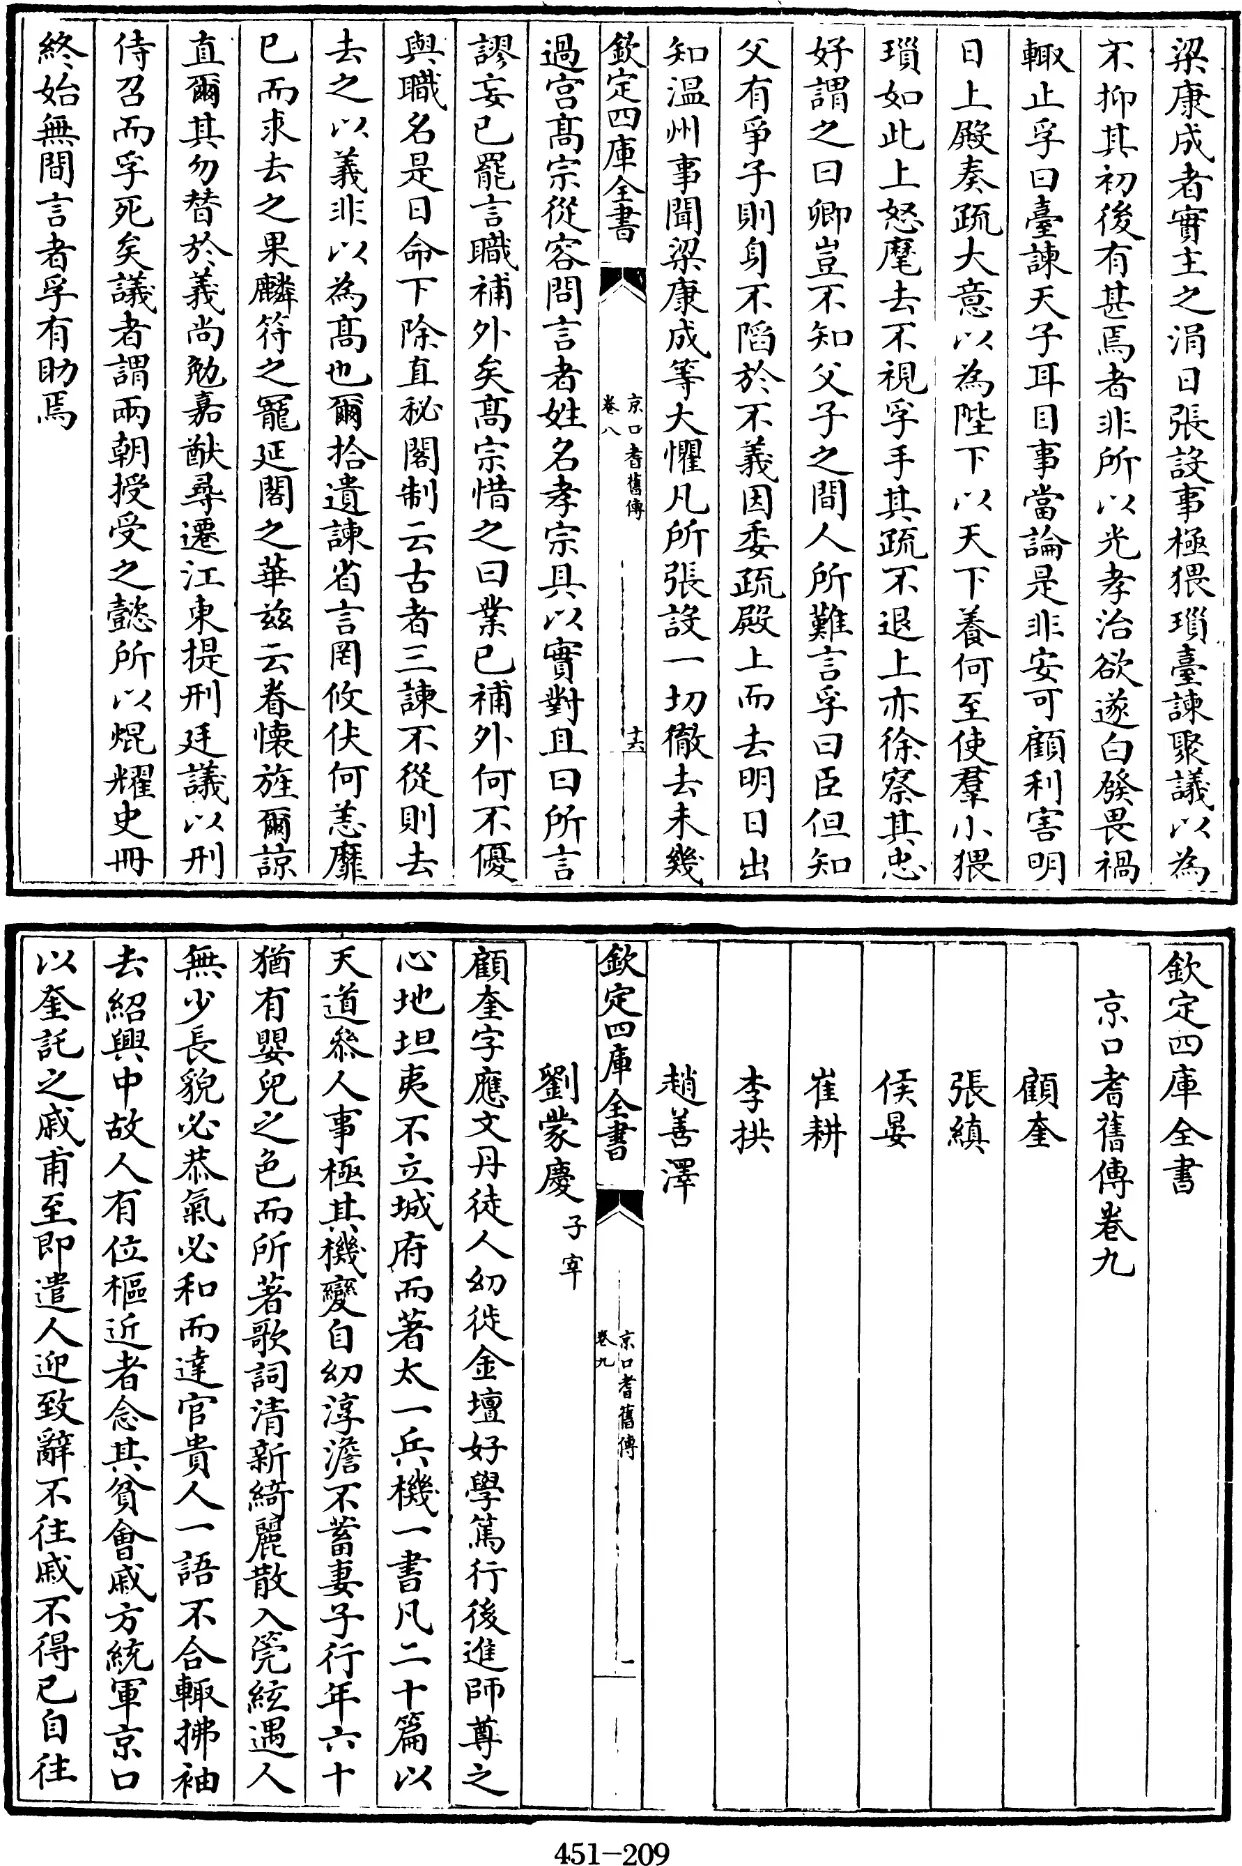 梁康成者實主之涓日張設事極猥瑣臺諫聚議以為
不抑其初後有甚焉者非所以光孝治欲遂白發畏禍
輙止孚曰臺諫天子耳目事當論是非安可顧利害明
日上殿奏疏大意以為陛下以天下養何至使羣小猥
瑣如此上怒麾去不視孚手其疏不退上亦徐察其忠
好謂之曰卿豈不知父子之間人所難言孚曰臣但知
父有爭子則身不陷於不義因委疏殿上而去明日出
知温州事聞梁康成等大懼凡所張設一切徹去未幾
欽定四庫全書
京口耆舊傳
卷八
十六
過宫髙宗從容問言者姓名孝宗具以實對且曰所言
謬妄已罷言職補外矣髙宗惜之曰業已補外何不優
與職名是日命下除直秘閣制云古者三諫不從則去
去之以義非以為髙也爾拾遺諫省言罔攸伏何恙靡
已而求去之果麟符之寵延閣之華兹云眷懐旌爾諒
直爾其勿替於義尚勉嘉猷尋遷江東提刑廷議以刑
侍召而孚死矣議者謂兩朝授受之懿所以焜耀史冊
終始無間言者孚有助焉
欽定四庫全書
京口耆舊傳卷九
顧奎
張縝
侯晏
崔耕
李拱
趙善澤
欽定四庫全書
京口耆舊傳
卷九
一
劉蒙慶 子宰
顧奎字應文丹徒人幼徙金壇好學篤行後進師尊之
心地坦夷不立城府而著太一兵機一書凡二十篇以
天道叅人事極其機變自幼淳澹不蓄妻子行年六十
猶有嬰兒之色而所著歌詞清新綺麗散入筦絃遇人
無少長貌必恭氣必和而達官貴人一語不合輙拂袖
去紹興中故人有位樞近者念其貧會戚方統軍京口
以奎託之戚甫至即遣人迎致辭不往戚不得已自往
451-209